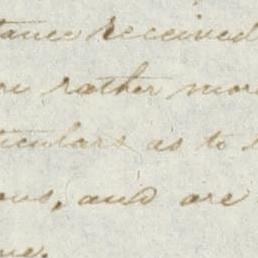 tance received
rather mor
ticulars as to
ous, and are